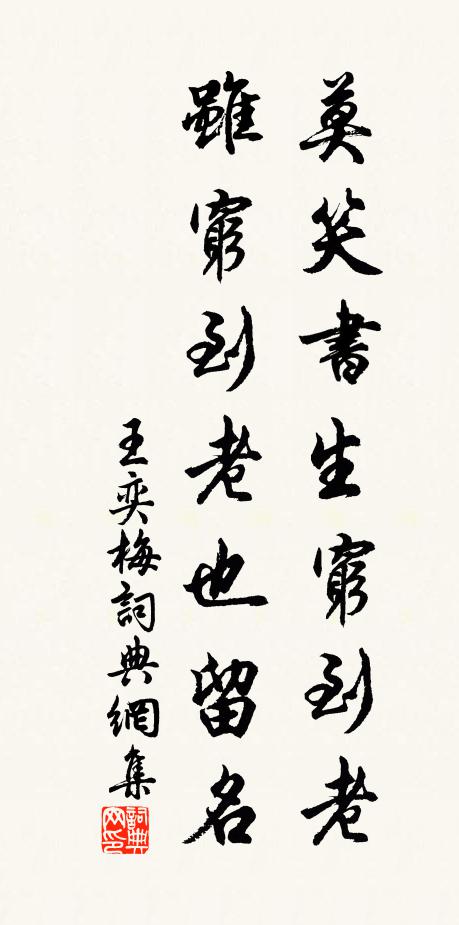 莫笑書生窮到老
雖窮到老也留名
王奕梅詞典網集
詞典網印